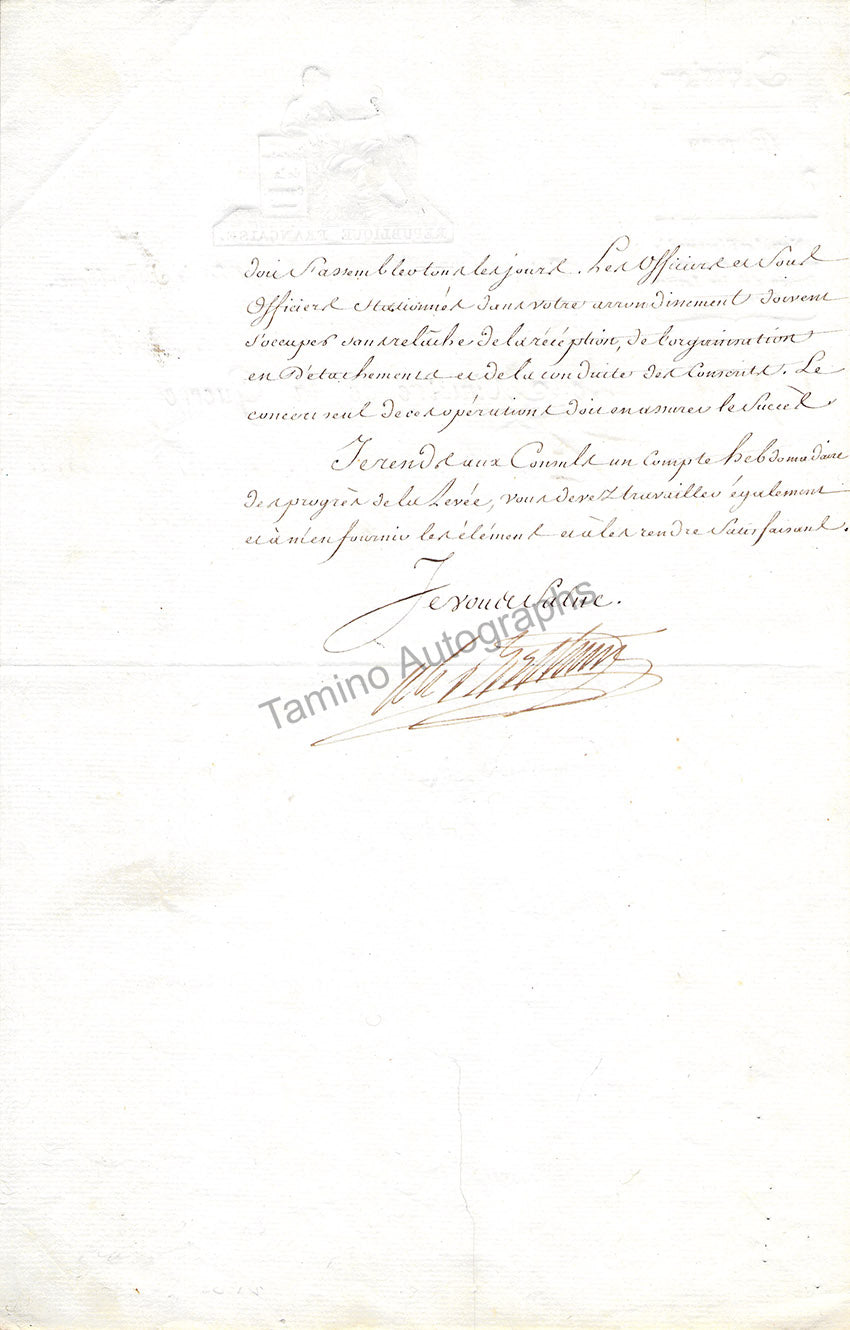 RÉPUBLIQUE FRANÇAISE.
doit s'assembler tous les jours. Les Officiers et Sous
Officiers stationnés dans votre arrondissement doivent
s'occuper sans relâche de la réception, de l'organisation
en Détachements et de la conduite des Conscrits. Le
concert seul de ces opérations doit en assurer le Succès.
Je rends aux Consuls un Compte hebdomadaire
des progrès de la Levée, vous devez travailler également
et à m'en fournir les élément et à les rendre Satisfaisant.
Je vous Salue.
Alex Berthier
Tamino Autographs